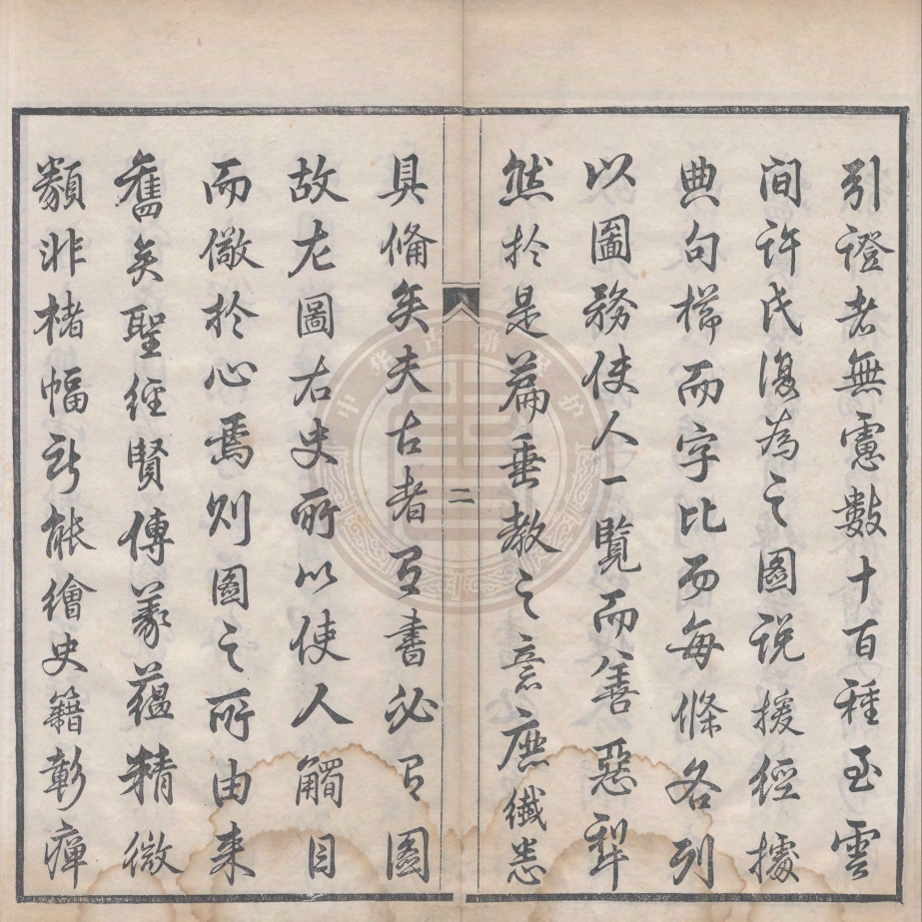 引證者無慮數十百種至雲
間許氏復為之圖說援經據
典句櫛而字比而每條各列
以圖務使人一覽而善惡犁
然於是篇垂教之意庶纖悉
二
具備矣夫古者有書必有圖
故左圖右史所以使人觸目
而儆於心焉則圖之所由来
舊矣聖經賢傳義蘊精微
類非楮幅所能繪史籍彰癉